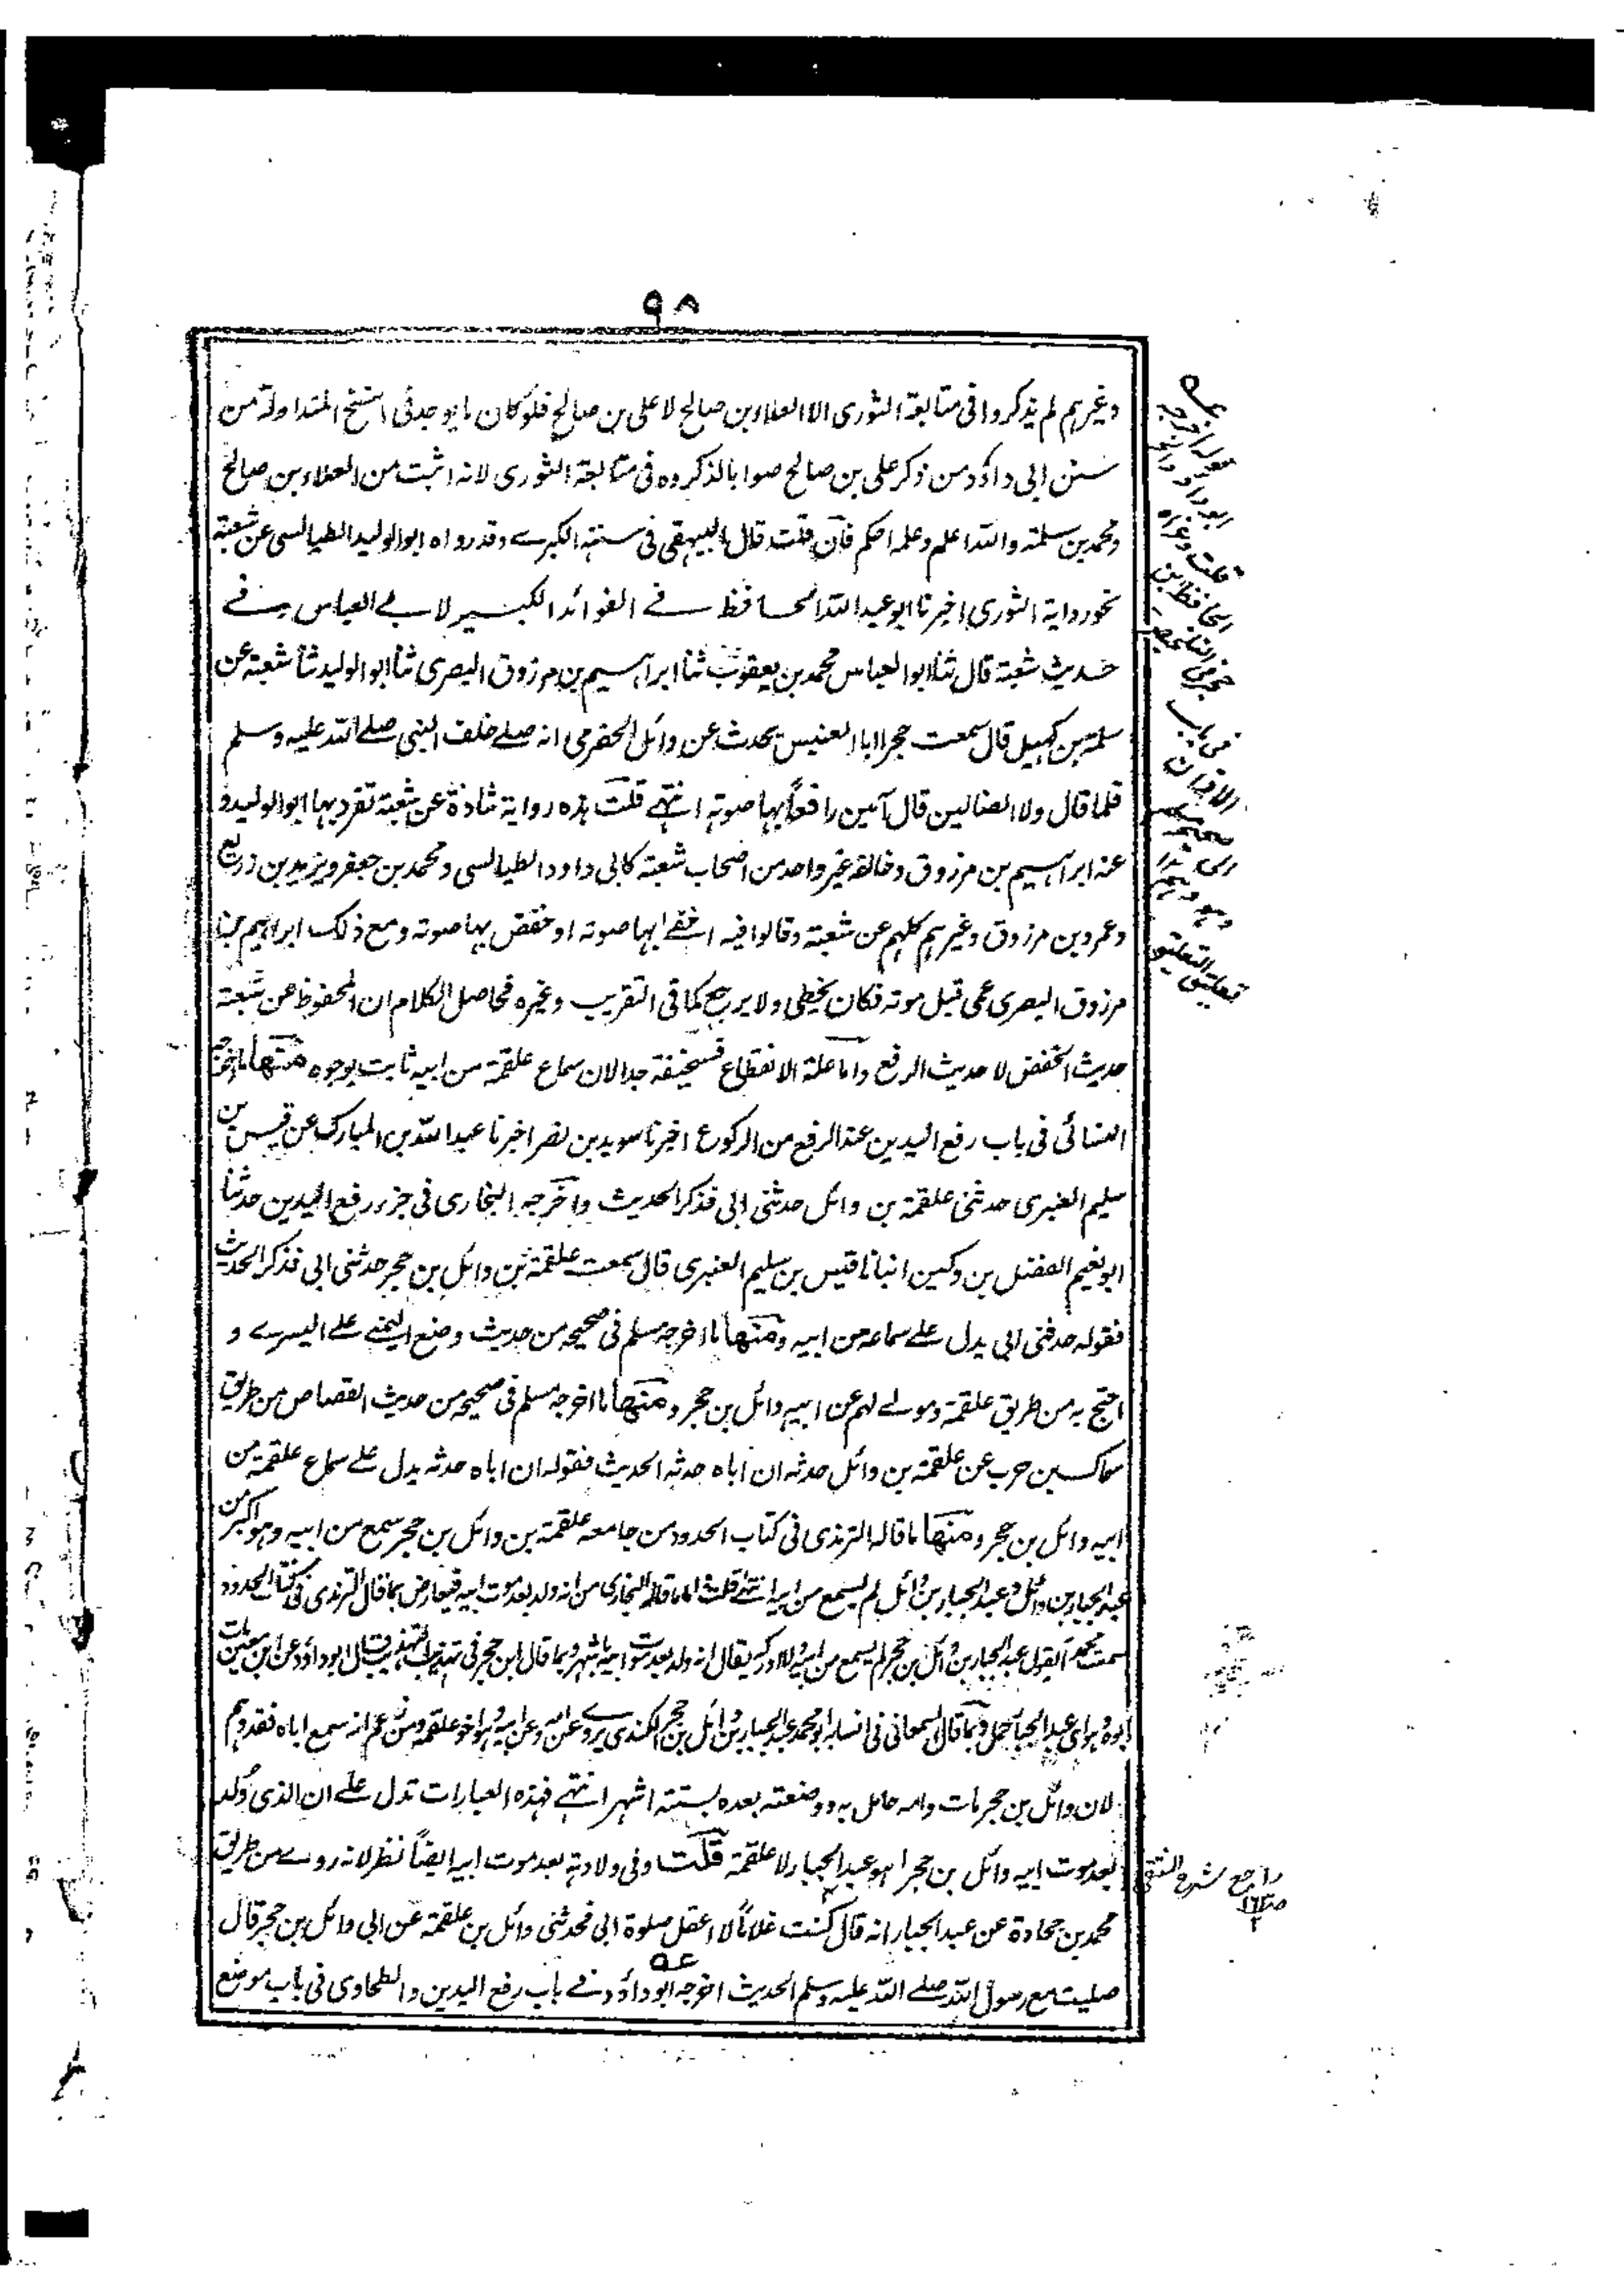 ٩٨
وغيرهم لم يذكروا فى متابعة الثورى الا العلاء بن صالح لا على بن صالح فلو كان ما يوجد فى النسخ المتداولة من
سنن ابى داؤد من ذكر على بن صالح صوابا لذكروه فى متابعة الثورى لانه اثبت من العلاء بن صالح
ومحمد بن سلمة والله اعلم وعلمه احكم فان قلت قال البيهقى فى سننه الكبرے وقد رواه ابو الوليد الطيالسى عن شعبة
نحو رواية الثورى اخبرنا ابو عبد الله الحافظ فے الفوائد الكبير لابے العباس وفے
حديث شعبة قال ثنا ابو العباس محمد بن يعقوب ثنا ابراهيم بن مرزوق البصرى ثنا ابو الوليد ثنا شعبة عن
سلمة بن كهيل قال سمعت حجرا ابا العنبس يحدث عن وائل الحضرمى انه صلے خلف النبى صلے الله عليه وسلم
فلما قال ولا الضالين قال آمين رافعاً بها صوته انتهے قلت هذه رواية شاذة عن شعبة تفرد بها ابو الوليد و
عنه ابراهيم بن مرزوق وخالفه غير واحد من اصحاب شعبة كابى داود الطيالسى ومحمد بن جعفر ويزيد بن زريع
وعمرو بن مرزوق وغيرهم كلهم عن شعبة وقالوا فيه اخفے بها صوته او خفض بها صوته ومع ذلك ابراهيم بن
مرزوق البصرى عمى قبل موته فكان يخطى ولا يرجع كما فى التقريب وغيره فحاصل الكلام ان المحفوظ عن شعبة
حديث الخفض لا حديث الرفع واما علة الانقطاع فسخيفة جدا لان سماع علقمة من ابيه ثابت بوجوه منها ما اخرجه
النسائى فى باب رفع اليدين عند الرفع من الركوع اخبرنا سويد بن نصر اخبرنا عبد الله بن المبارك عن قيس بن
سليم العنبرى حدثنى علقمة بن وائل حدثنى ابى فذكر الحديث واخرجه البخارى فى جزء رفع اليدين حدثنا
ابو نعيم الفضل بن دكين انبانا قيس بن سليم العنبرى قال سمعت علقمة بن وائل بن حجر حدثنى ابى فذكر الحديث
فقوله حدثنى ابى يدل علے سماعه من ابيه ومنها ما اخرجه مسلم فى صحيحه من حديث وضع اليمنے علے اليسرے و
احتج به من طريق علقمة ومولے لهم عن ابيه وائل بن حجر ومنها ما اخرجه مسلم فى صحيحه من حديث القصاص من طريق
سماك بن حرب عن علقمة بن وائل حدثه ان اباه حدثه الحديث فقوله ان اباه حدثه يدل علے سماع علقمة من
ابيه وائل بن حجر ومنها ما قاله الترمذى فى كتاب الحدود من جامعه علقمة بن وائل بن حجر سمع من ابيه وهو اكبر من
عبد الجبار بن وائل وعبد الجبار بن وائل لم يسمع من ابيه انتهے قلت اما ما قاله البخارى من انه ولد بعد موت ابيه فيعارض بما قال الترمذى فى كتاب الحدود
سمعت محمدا يقول عبد الجبار بن وائل بن حجر لم يسمع من ابيه ولا ادركه يقال انه ولد بعد موت ابيه باشهر وبما قال ابن حجر فى تهذيب التهذيب قال ابو داؤد عن ابن معين مات
ابوه وهو اى عبد الجبار حمل وبما قال السمعانى فى انسابه ابو محمد عبد الجبار بن وائل بن حجر الكندى يروے عن امه وعن ابيه وهو اخو علقمة ومن زعم انه سمع اباه فقد وهم
لان وائل بن حجر مات وامه حامل به ووضعته بعده بستة اشهر انتهے فهذه العبارات تدل علے ان الذى ولد
بعد موت ابيه وائل بن حجر انما هو عبد الجبار لا علقمة قلت وفى ولادته بعد موت ابيه ايضاً نظر لانه روے من طريق
محمد بن جحادة عن عبد الجبار انه قال كنت غلاماً لا اعقل صلوة ابى فحدثنى وائل بن علقمة عن ابى وائل بن حجر قال
صليت مع رسول الله صلے الله عليه وسلم الحديث اخرجه ابو داؤد فے باب رفع اليدين والطحاوى فى باب موضع
قلت وغيره
الحافظ ابن
من باب
الاقران
تعليق التعليق
راجع شرح النقى